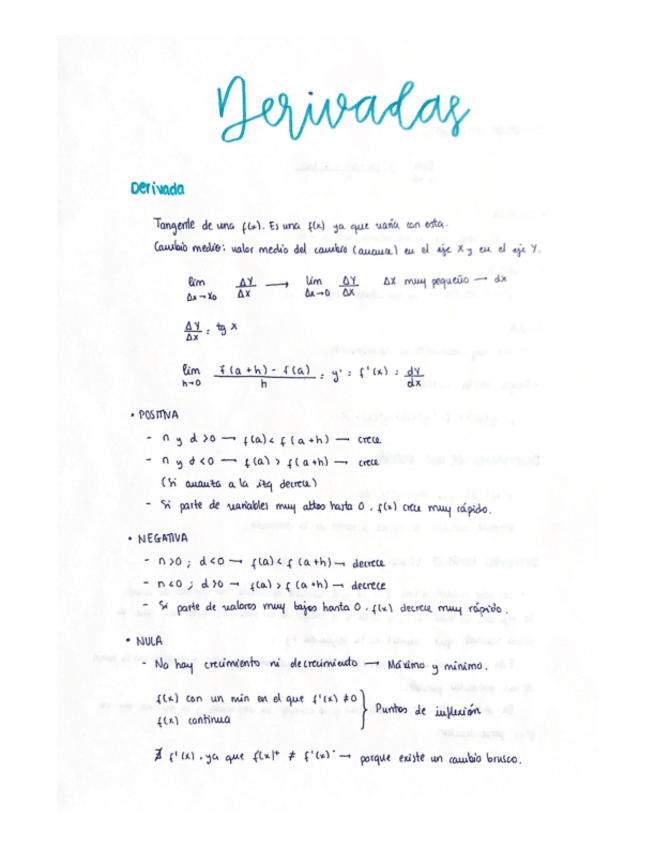 Derivadas
Derivada
Tangente de una f(x). Es una f(x) ya que varía con esta.
Cambio medio: valor medio del cambio (avanza) en el eje X y en el eje Y.
lim Δx→x₀ ΔY/ΔX → lim Δx→0 ΔY/ΔX ΔX muy pequeño → dx
ΔY/ΔX = tg x
lim h→0 f(a+h) - f(a) / h = y' = f'(x) = dY/dx
• POSITIVA
- n y d >0 → f(a) < f(a+h) → crece
- n y d <0 → f(a) > f(a+h) → crece
(Si avanza a la izq decrece)
- Si parte de variables muy altos hasta 0, f(x) crece muy rápido.
• NEGATIVA
- n>0 ; d<0 → f(a) < f(a+h) → decrece
- n<0 ; d>0 → f(a) > f(a+h) → decrece
- Si parte de valores muy bajos hasta 0, f(x) decrece muy rápido.
• NULA
- No hay crecimiento ni decrecimiento → Máximo y mínimo.
f(x) con un min en el que f'(x) ≠0 } Puntos de inflexión
f(x) continua
∄ f'(x), ya que f(x)⁺ ≠ f'(x)⁻ → porque existe un cambio brusco.